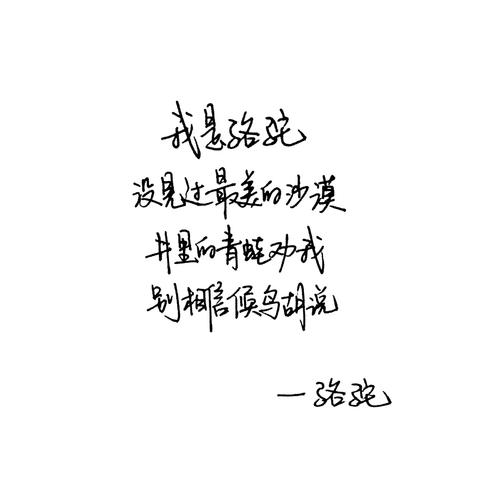 我是骆驼
没见过最美的沙漠
井里的青蛙劝我
别相信候鸟胡说
—骆驼